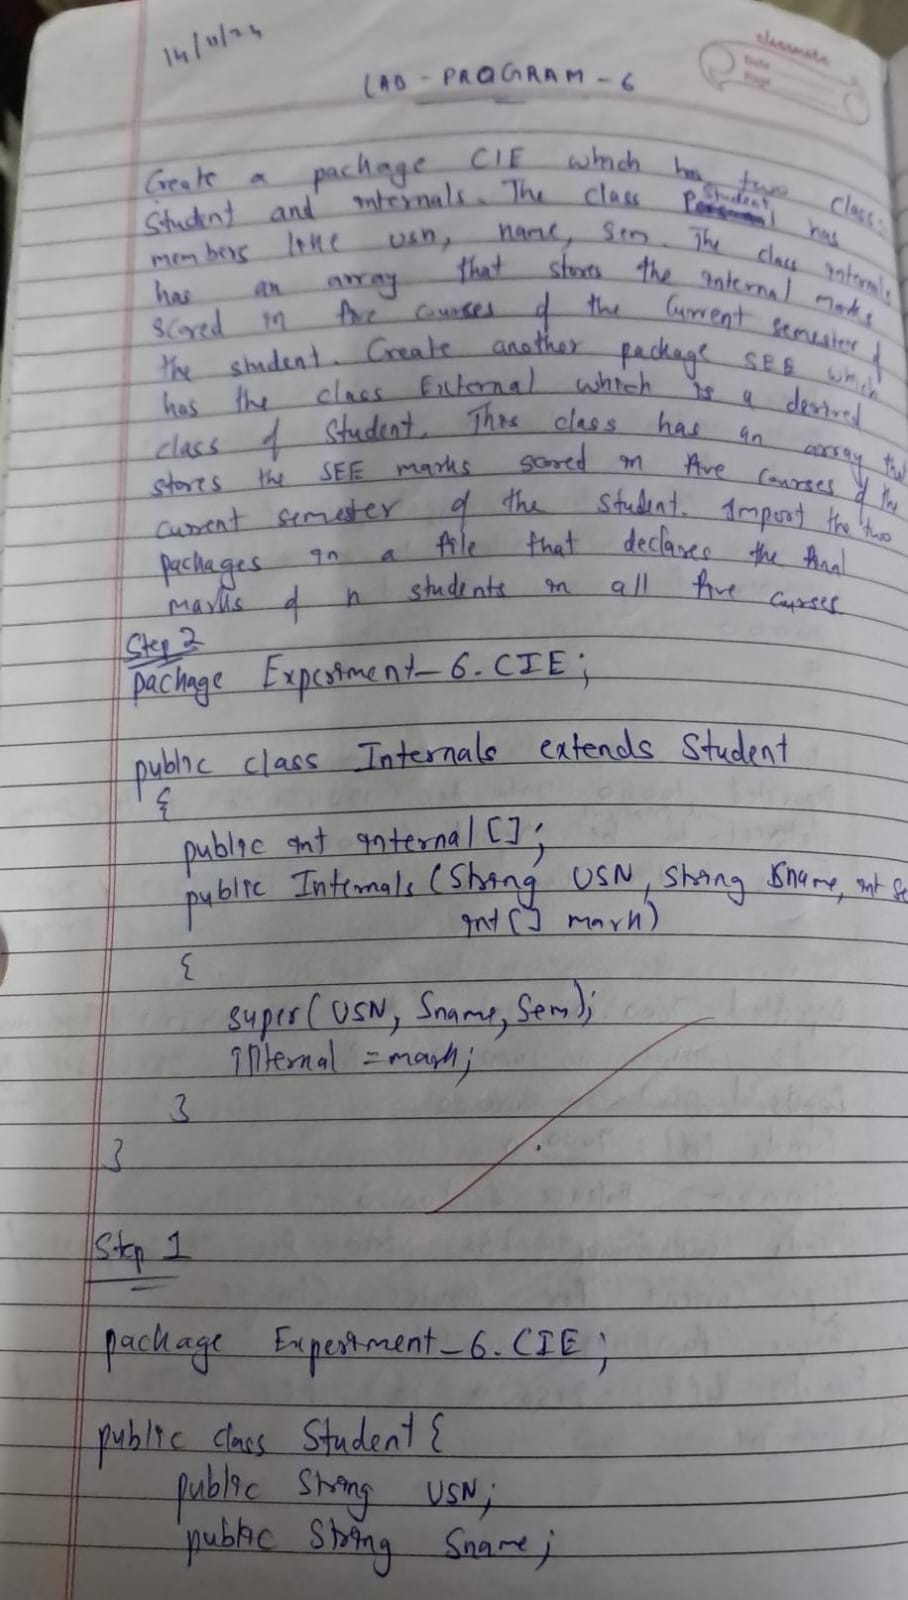 14/11/24
classmate
Date
Page
LAB - PROGRAM - 6
Create a package CIE which has two class:
Student and internals. The class Student has
members like usn, name, sem. The class internals
has an array that stores the internal marks
scored in five courses of the current semester of
the student. Create another package SEE which
has the class External which is a derived
class of Student. This class has an array that
stores the SEE marks scored in five courses of the
current semester of the student. Import the two
packages in a file that declares the final
marks of n students in all five courses
Step 2
package Experiment_6.CIE;
public class Internals extends Student
{
public int internal[];
public Internals(String USN, String Sname, int Se
int[] mark)
{
super(USN, Sname, Sem);
internal = mark;
}
}
Step 1
package Experiment_6.CIE;
public class Student {
public String USN;
public String Sname;